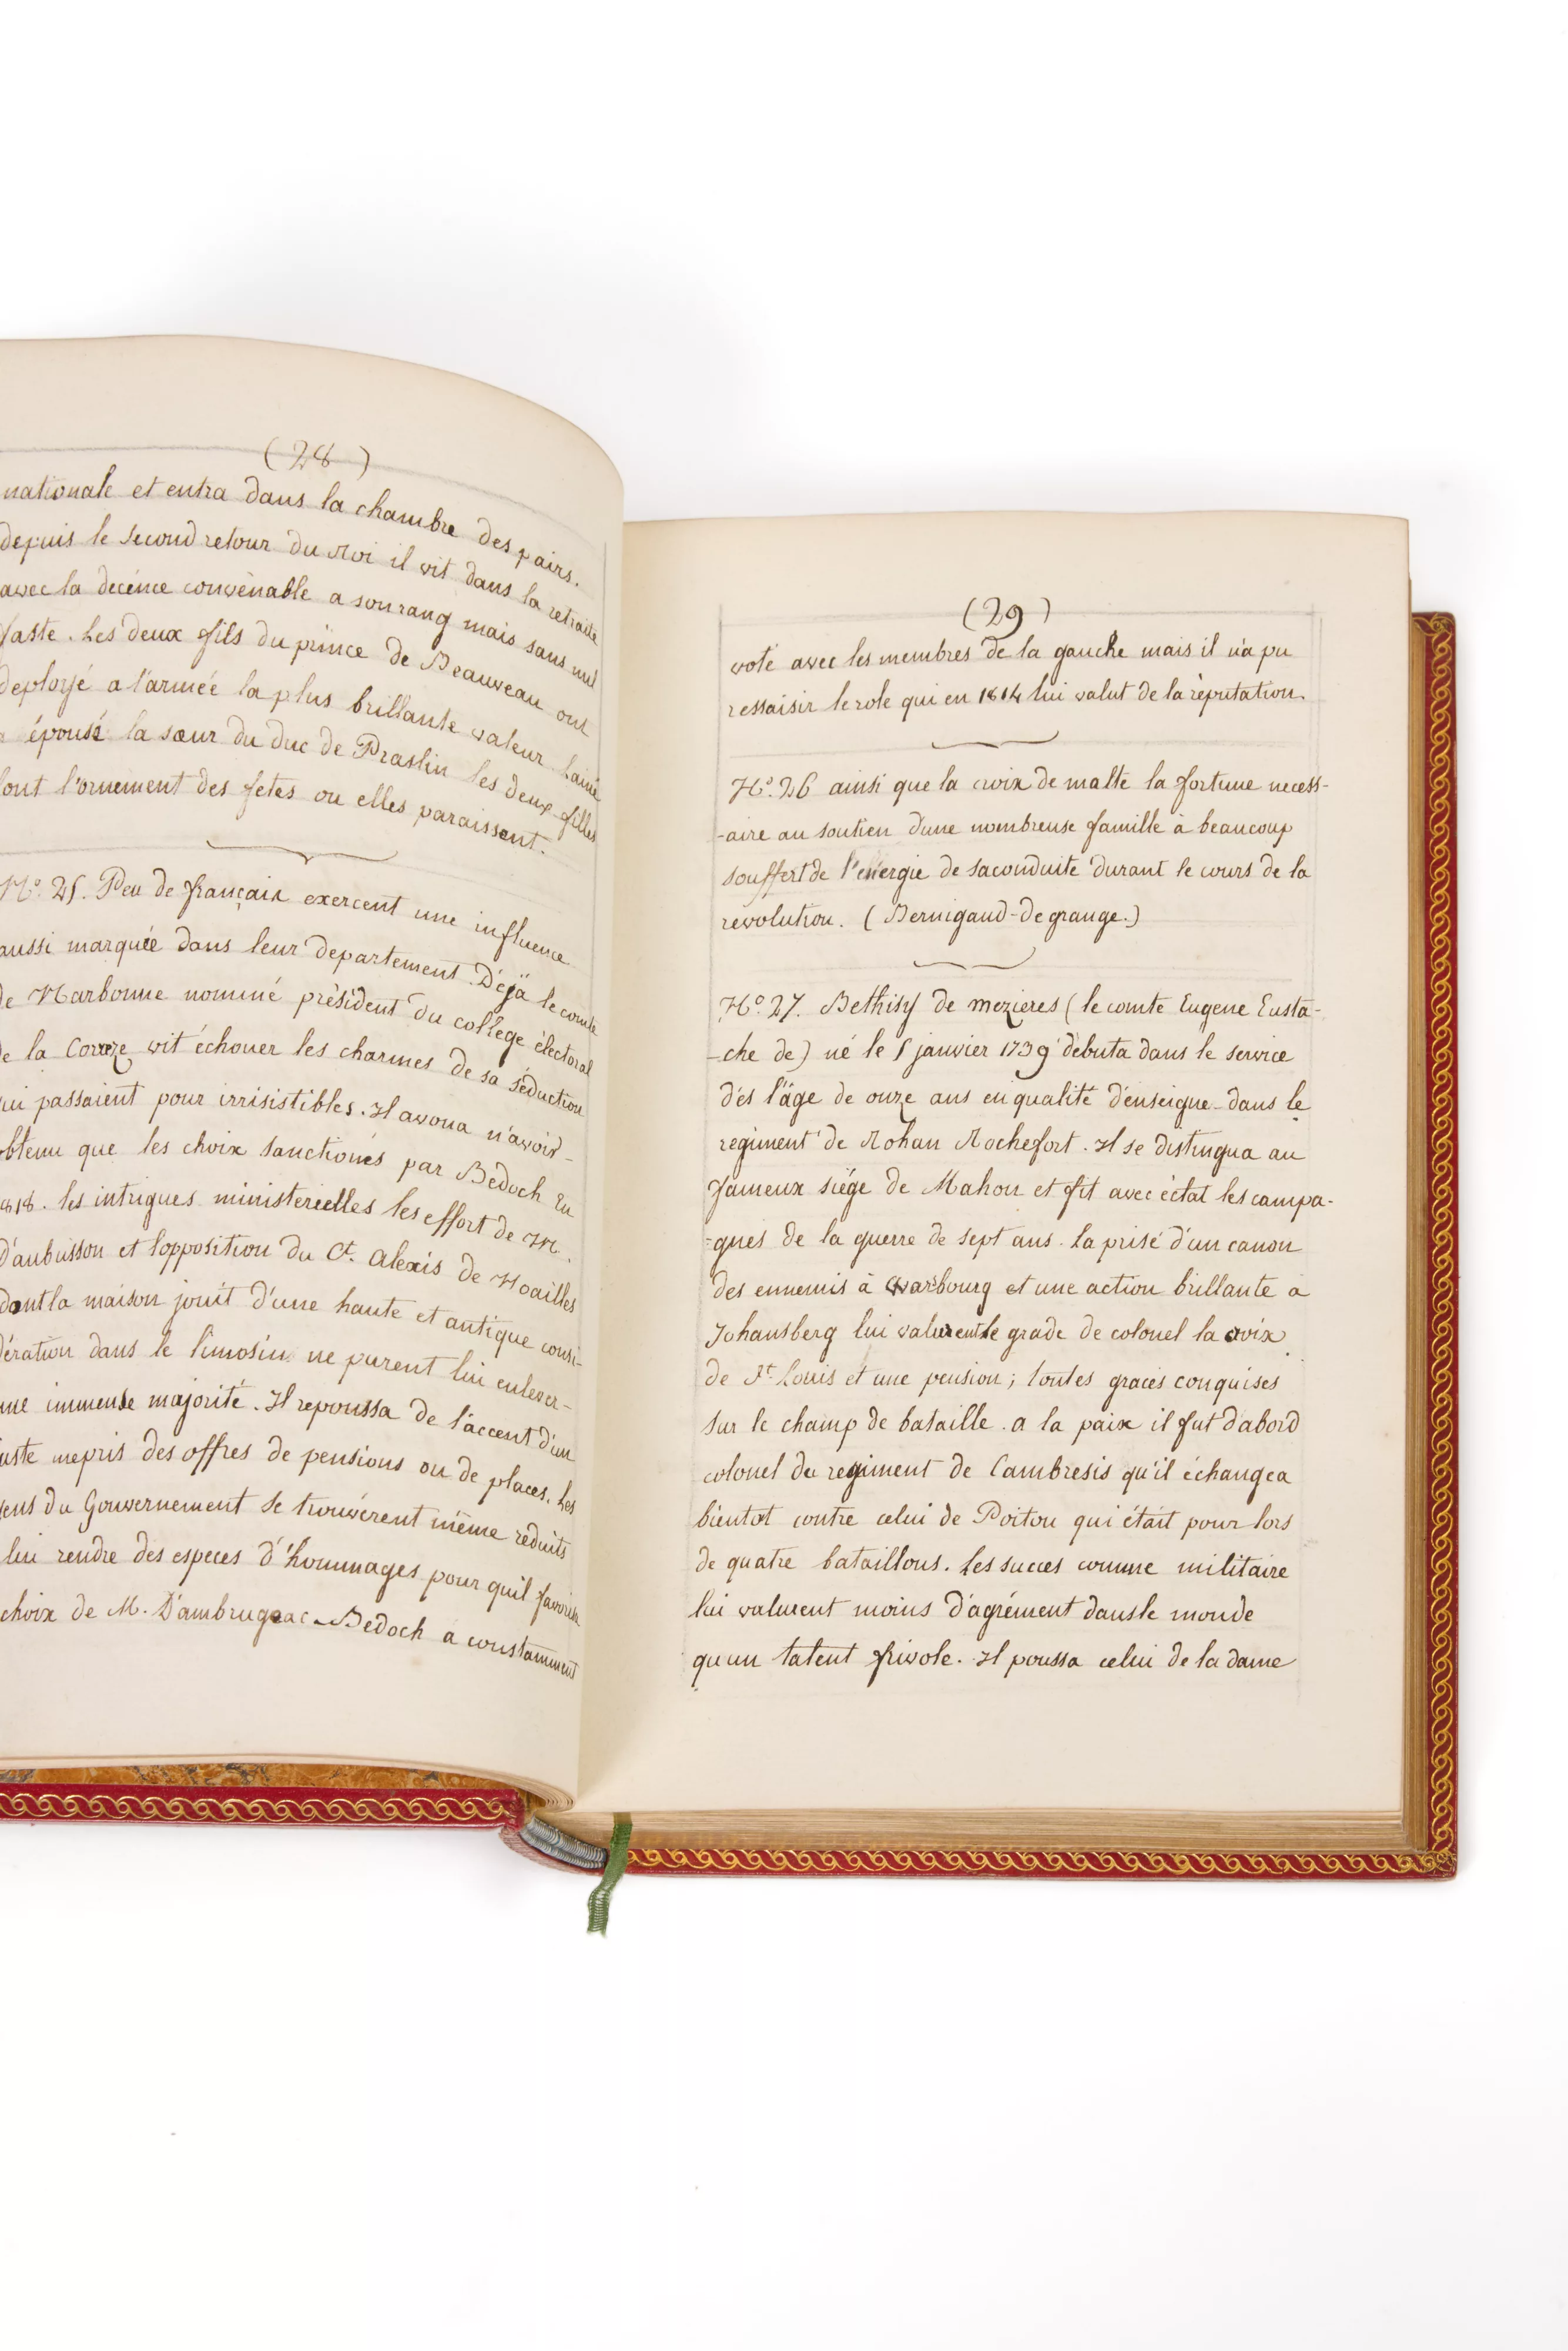 (28)
nationale et entra dans la chambre des pairs.
depuis le second retour du Roi il vit dans la retraite
avec la decénce convènable a son rang mais sans nul
faste. Les deux fils du prince de Beauveau ont
deployé a l'armée la plus brillante valeur lainé
a épousé la sœur du duc de Praslin les deux filles
sont l'ornement des fetes ou elles paraissent.
N.º 25. Peu de français exercent une influence
aussi marquée dans leur departement. Déjä le comte
de Narbonne nommé président du collège électoral
de la Correze vit échouer les charmes de sa séduction
qui passaient pour irrisistibles. Il avoua n'avoir
obtenu que les choix sanctionés par Bedoch En
1818. les intrigues ministerielles les effort de M.
D'aubusson et lopposition du Ct. Alexis de Noailles
dont la maison jouit d'une haute et antique consi-
dération dans le limosin ne purent lui enlever-
une immense majorité. Il repoussa de l'accent d'un
juste mepris des offres de pensions ou de places. Les
gens du Gouvernement se trouvérent même réduits
lui rendre des especes d'hommages pour quil favorise
choix de M. D'ambrugeac - Bedoch a constamment
(29)
voté avec les membres de la gauche mais il n'a pu
ressaisir le role qui en 1814 lui valut de la rèputation.
N.º 26 ainsi que la croix de malte la fortune necess-
-aire au soutien d'une nombreuse famille à beaucoup
souffert de l'énergie de sa conduite durant le cours de la
revolution. (Bernigaud-de grange.)
N.º 27. Bethisy de mezieres (le comte Eugene Eusta-
-che de) né le 5 janvier 1739 débuta dans le service
dés l'äge de onze ans en qualité d'énseigne dans le
regiment de Rohan Rochefort. Il se distingua au
fameux siége de Mahon et fit avec éclat les campa-
=gnes de la guerre de sept ans. La prise d'un canon
des ennemis à Warbourg et une action brillante a
Johansberg lui valurent le grade de colonel la croix
de St. Louis et une pension; toutes graces conquises
sur le champ de bataille. a la paix il fut d'abord
colonel du regiment de Cambresis qu'il échangea
bientot contre celui de Poitou qui était pour lors
de quatre bataillons. Les succes comme militaire
lui valurent moins d'agrément dans le monde
qu'un talent frivole. Il poussa celui de la dame